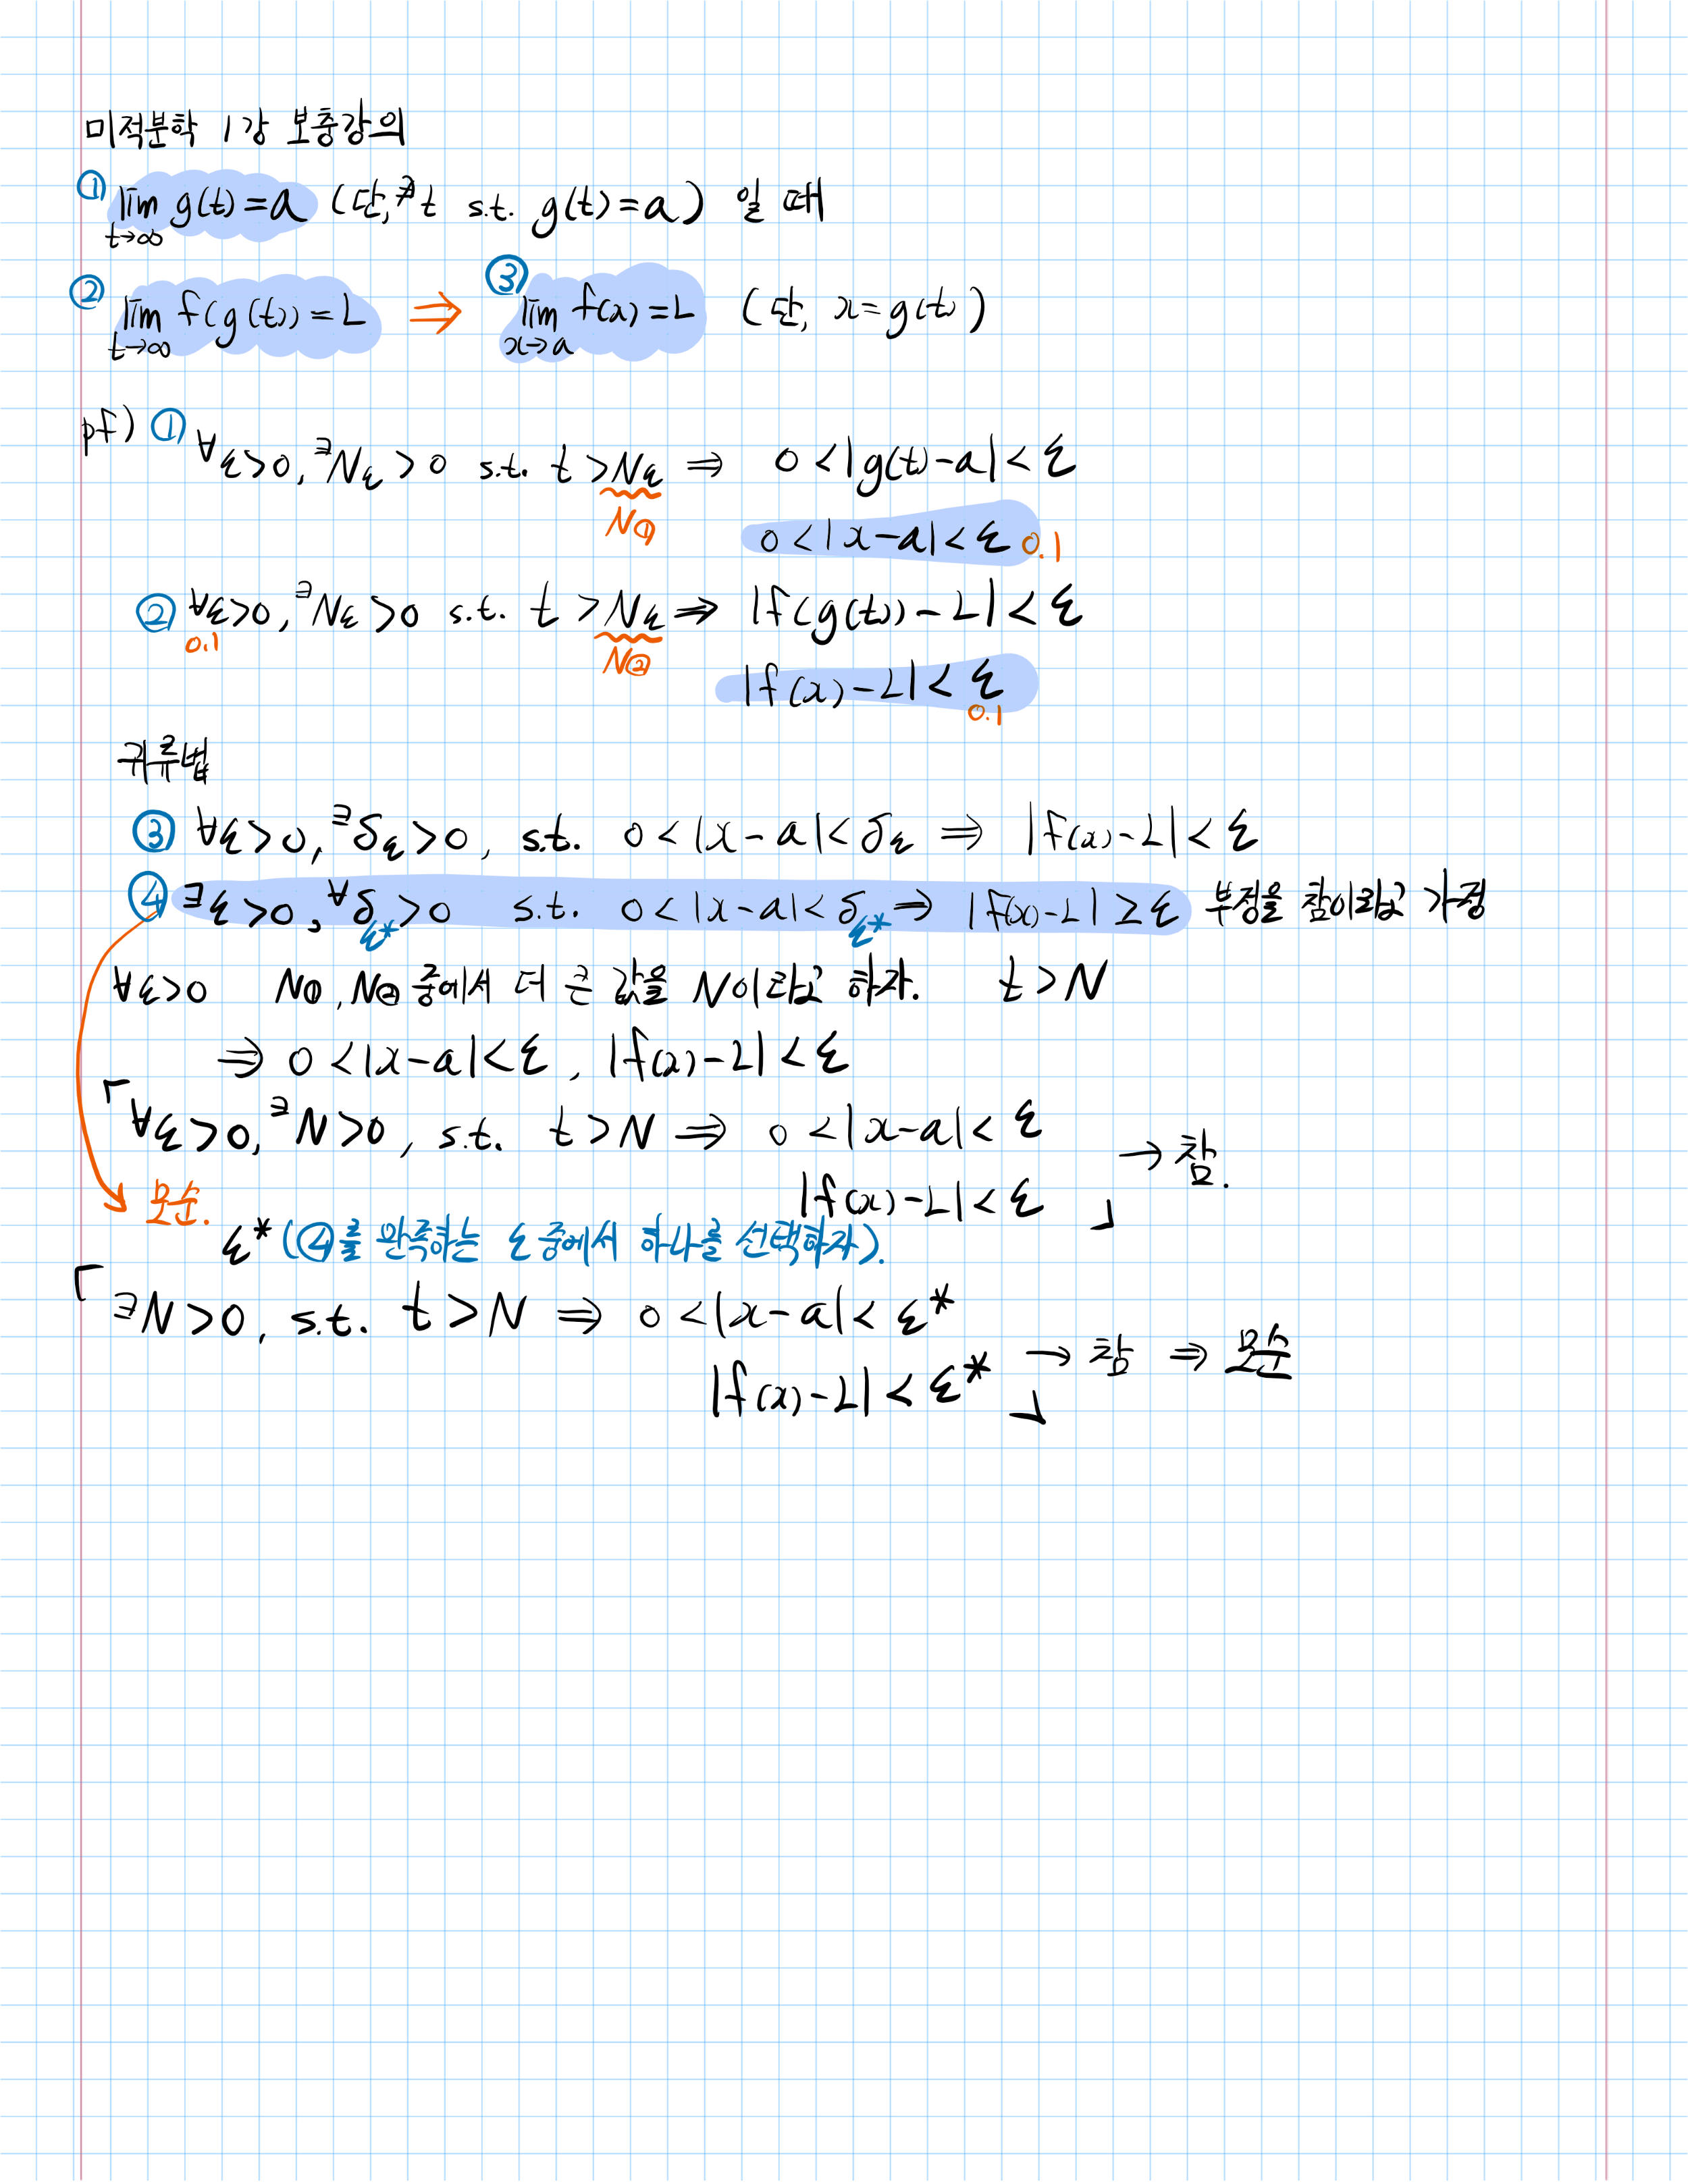 미적분학 1강 보충강의
① lim g(t)=a (단, ∄t s.t. g(t)=a) 일 때
t→∞
② lim f(g(t))=L ⇒ ③ lim f(x)=L (단, x=g(t))
t→∞ x→a
pf) ① ∀ε>0, ∃Nε>0 s.t. t>Nε ⇒ 0<|g(t)-a|<ε
N①
0<|x-a|<ε 0.1
② ∀ε>0, ∃Nε>0 s.t. t>Nε ⇒ |f(g(t))-L|<ε
0.1 N②
|f(x)-L|<ε
0.1
귀류법
③ ∀ε>0, ∃δε>0, s.t. 0<|x-a|<δε ⇒ |f(x)-L|<ε
④ ∃ε>0, ∀δε*>0 s.t. 0<|x-a|<δε* ⇒ |f(x)-L|≥ε 부정을 참이라고 가정
∀ε>0 N①, N② 중에서 더 큰 값을 N이라고 하자. t>N
⇒ 0<|x-a|<ε, |f(x)-L|<ε
「∀ε>0, ∃N>0, s.t. t>N ⇒ 0<|x-a|<ε
|f(x)-L|<ε 」 → 참.
모순.
ε* (④를 만족하는 ε 중에서 하나를 선택하자).
「∃N>0, s.t. t>N ⇒ 0<|x-a|<ε*
|f(x)-L|<ε* 」 → 참 ⇒ 모순